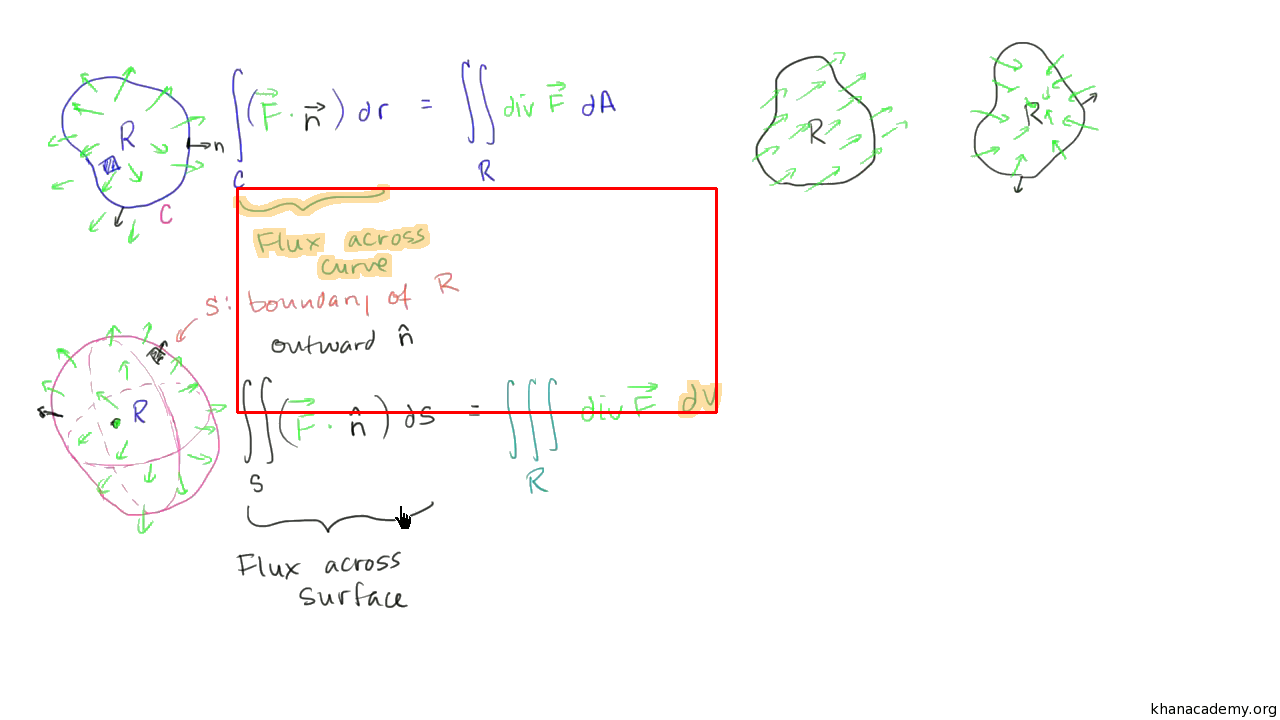 R
n
C
∫_C (F⃗ · n⃗) dr = ∬_R div F⃗ dA
R
R
Flux across
curve
S: boundary of R
outward n̂
R
∬_S (F⃗ · n̂) ds = ∭_R div F⃗ dV
Flux across
surface
khanacademy.org